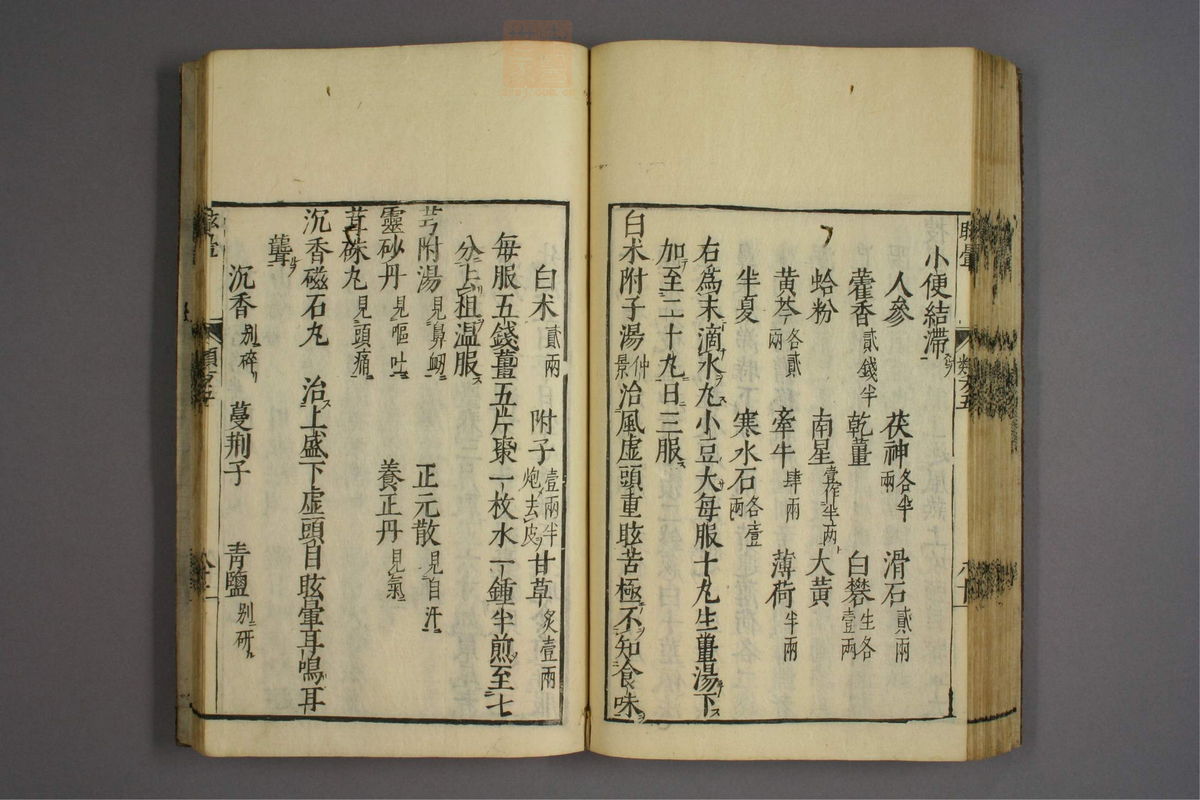 小便結滯
人參 茯神各半兩 滑石貳兩
藿香貳錢半 乾薑 白礬生各壹兩
蛤粉 南星壹作半两 大黄
黄芩各貳兩 牽牛肆兩 薄荷半兩
半夏 寒水石各壹两
右爲末滴水丸小豆大每服十丸生薑湯下
加至二十丸日三服
白术附子湯仲景治風虚頭重眩苦極不知食味
白术貳兩 附子壹兩半炮去皮 甘草炙壹兩
每服五錢薑五片棗一枚水一鍾半煎至七
分去粗温服
芎附湯見鼻衂 正元散見自汗
靈砂丹見嘔吐 養正丹見氣
茸硃丸見頭痛
沉香磁石丸 治上盛下虚頭目眩暈耳鳴耳
聾
沉香别碎 蔓荆子 青鹽别研